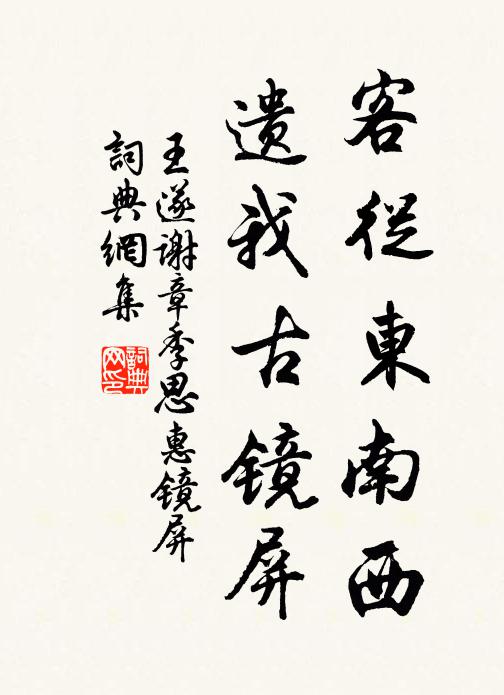 客從東南西
遺我古镜屏
王遂謝章季思惠镜屏
詞典網集
詞典網印